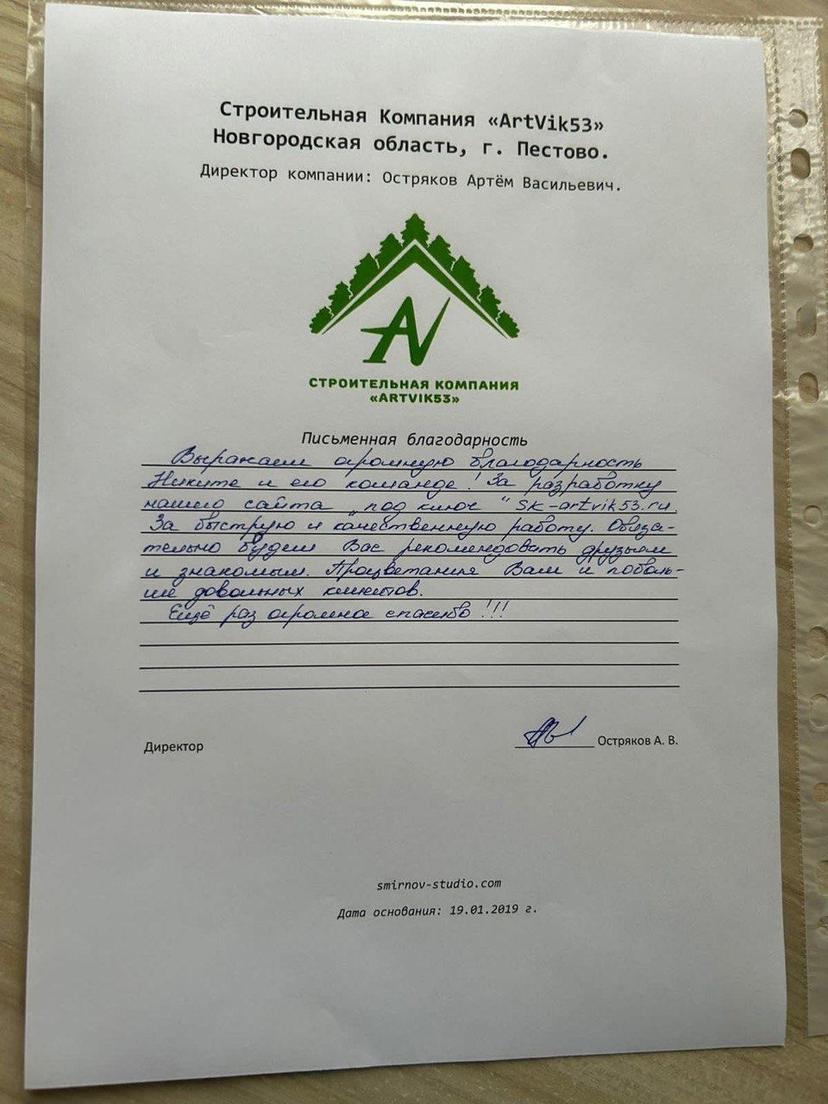 Строительная Компания «ArtVik53»
Новгородская область, г. Пестово.
Директор компании: Остряков Артём Васильевич.
AV
СТРОИТЕЛЬНАЯ КОМПАНИЯ
«ARTVIK53»
Письменная благодарность
Выражаем огромную благодарность
Никите и его команде! За разработку
нашего сайта "под ключ" Sk-artvik53.ru.
За быструю и качественную работу. Обяза-
тельно будем Вас рекомендовать друзьям
и знакомым. Процветания Вам и поболь-
ше довольных клиентов.
Ещё раз огромное спасибо!!!
Директор
Остряков А. В.
smirnov-studio.com
Дата основания: 19.01.2019 г.